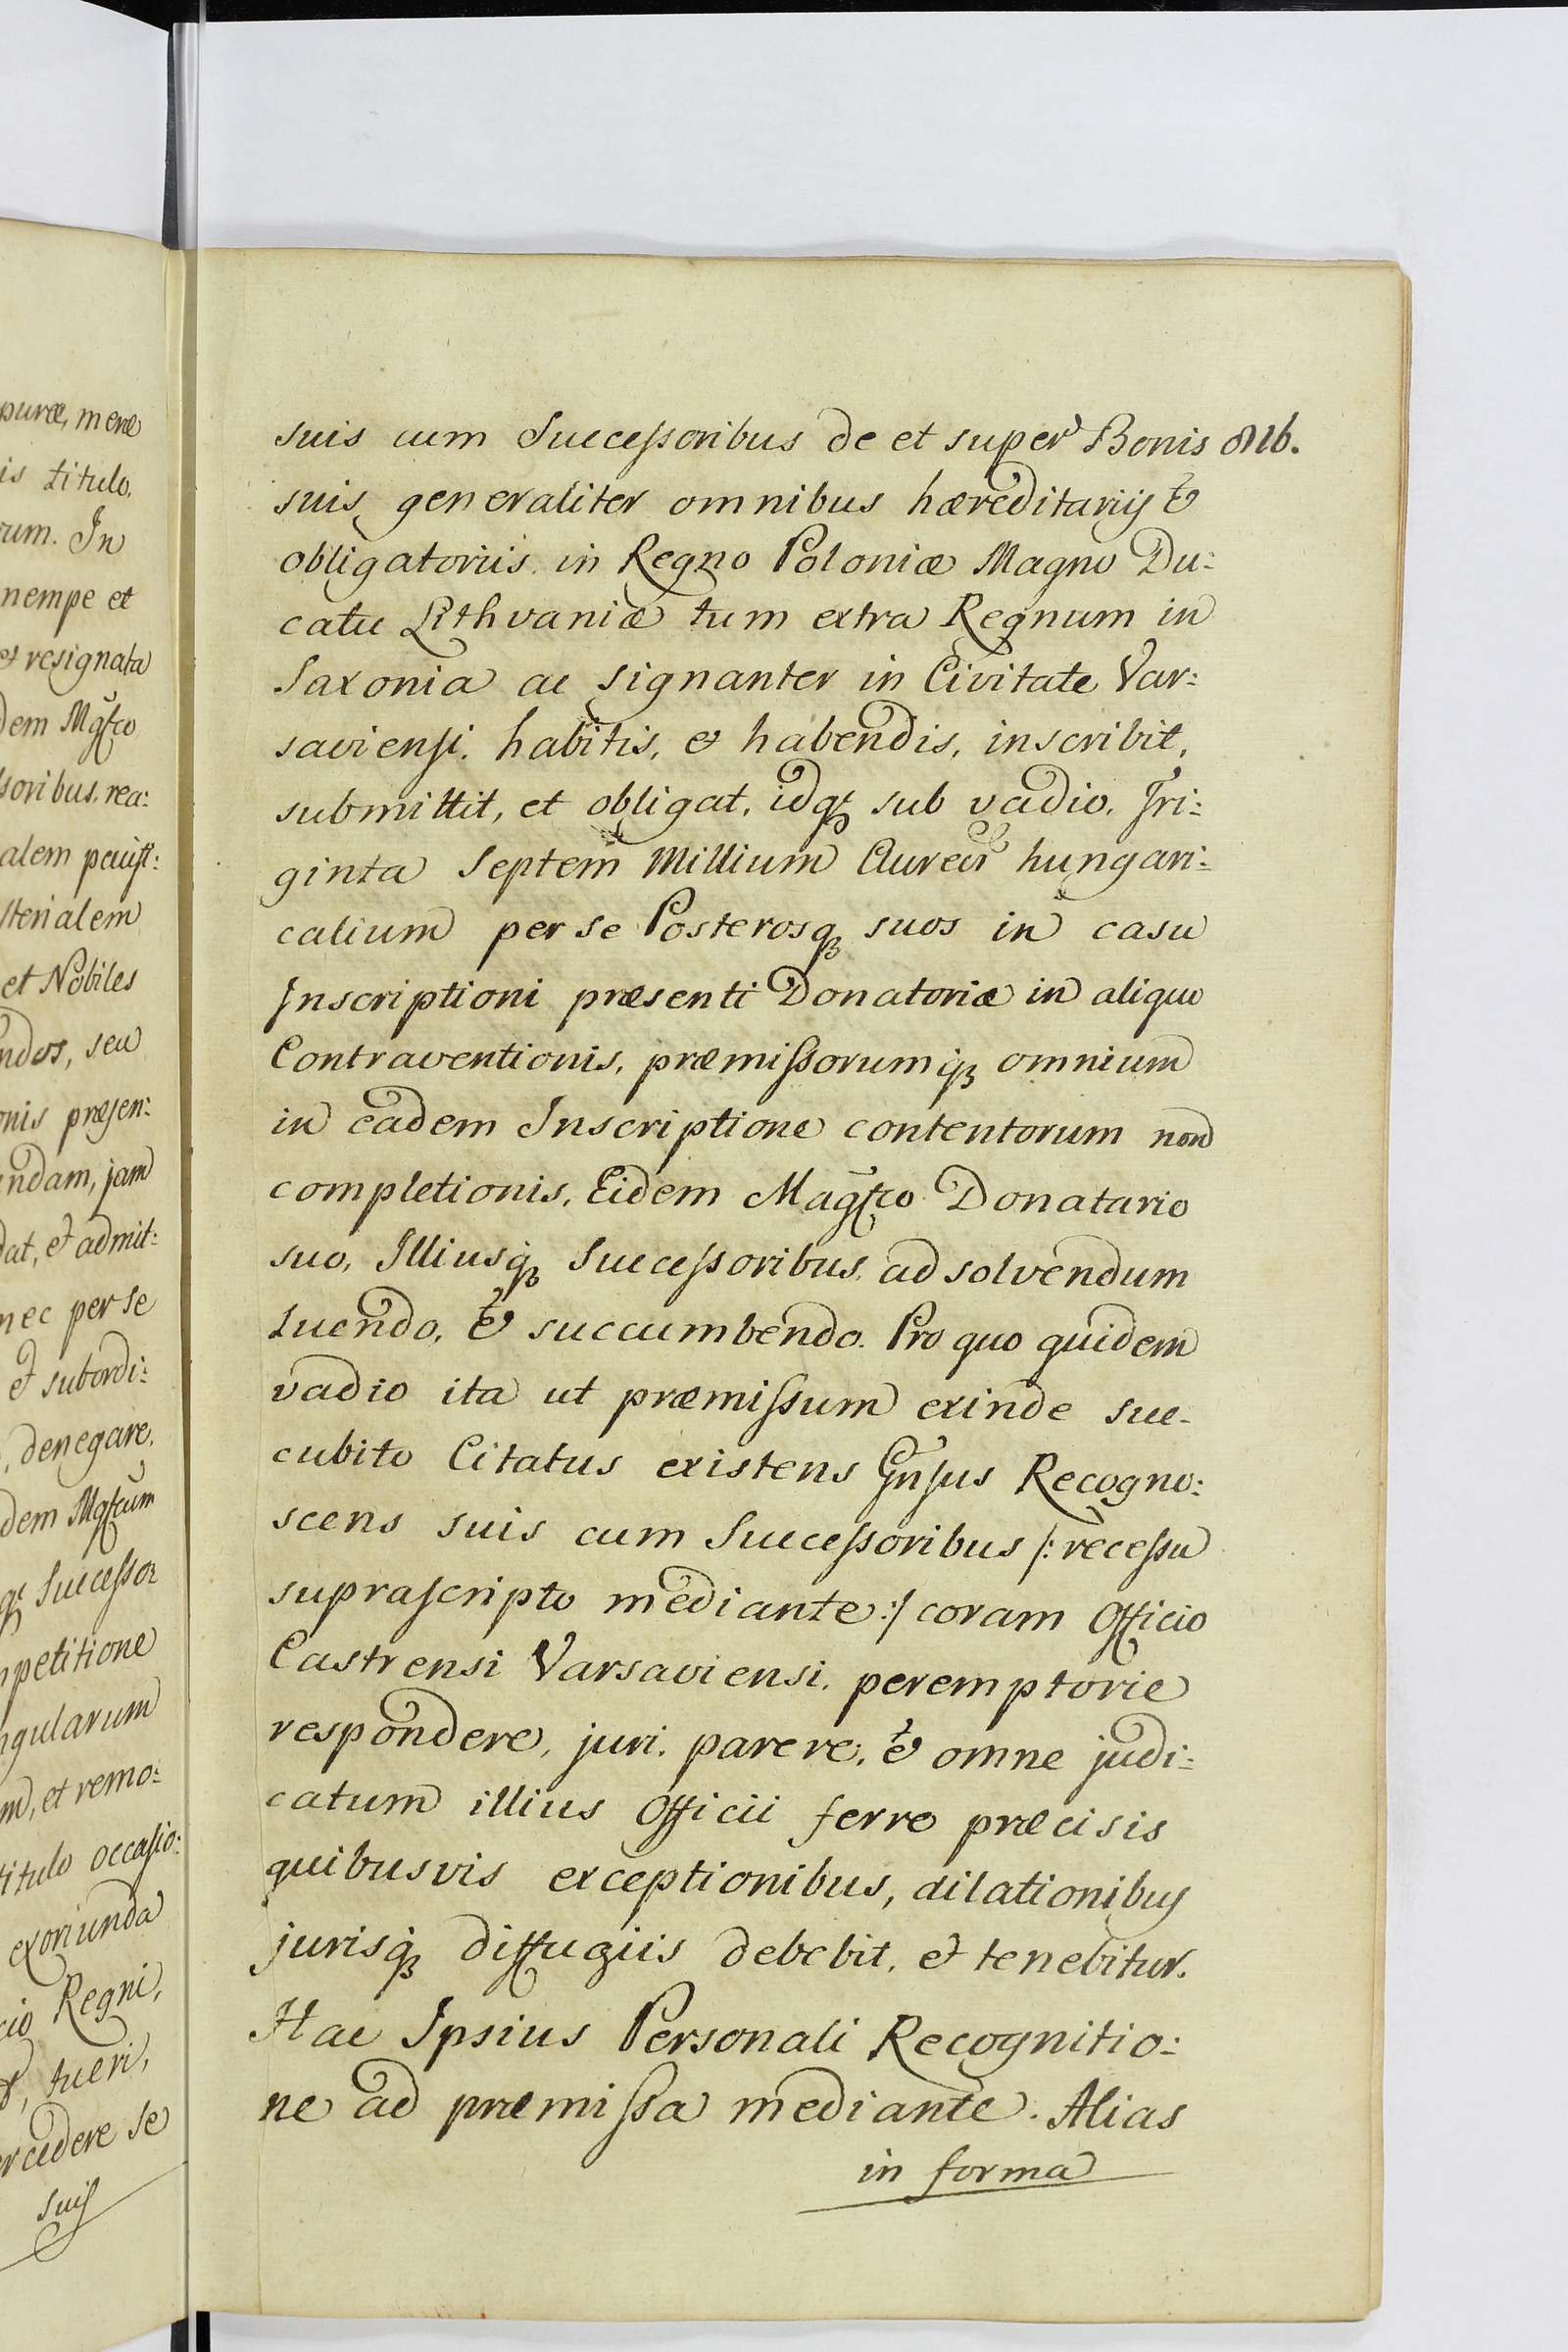 puræ, meræ
is titulo,
rum. In
nempe et
et resignata
dem Mgfco
soribus, rea:
alem
sterialem
et Nobiles
ndos, seu
onis præsen:
endam, jam
dat, et admit:
nec per se
et subordi:
, denegare,
dem Mgfcum
Successor
petitione
ngularum
m, et remo:
titulo occasio:
exoriunda
cio Regni,
tueri,
rcedere se
suis
suis cum Successoribus de et super Bonis
suis generaliter omnibus hæreditariis et
obligatoriis in Regno Poloniæ Magno Du:
catu Lithvaniæ tum extra Regnum in
Saxonia ac signanter in Civitate Var:
saviensi. habitis, et habendis, inscribit,
submittit, et obligat, idq3 sub vadio, Tri:
ginta Septem Millium Aureor hungari:
calium per se Posterosq3 suos in casu
Inscriptioni præsenti Donatoriæ in aliquo
Contraventionis, præmissorumq3 omnium
in eadem Inscriptione contentorum non
completionis, Eidem Magfco Donatario
suo, Illiusq3 Successoribus, ad solvendum
luendo, et succumbendo. Pro quo quidem
vadio ita ut præmissum exinde suc-
cubito Citatus existens Gnsus Recogno:
scens suis cum Successoribus /: recessu
suprascripto mediante :/ coram Officio
Castrensi Varsaviensi, peremptorie
respondere, juri, parere, et omne judi:
catum illius Officii ferre præcisis
quibusvis exceptionibus, dilationibus
jurisq3 diffugiis debebit, et tenebitur.
Hac Ipsius Personali Recognitio:
ne ad præmissa mediante. Alias
in forma